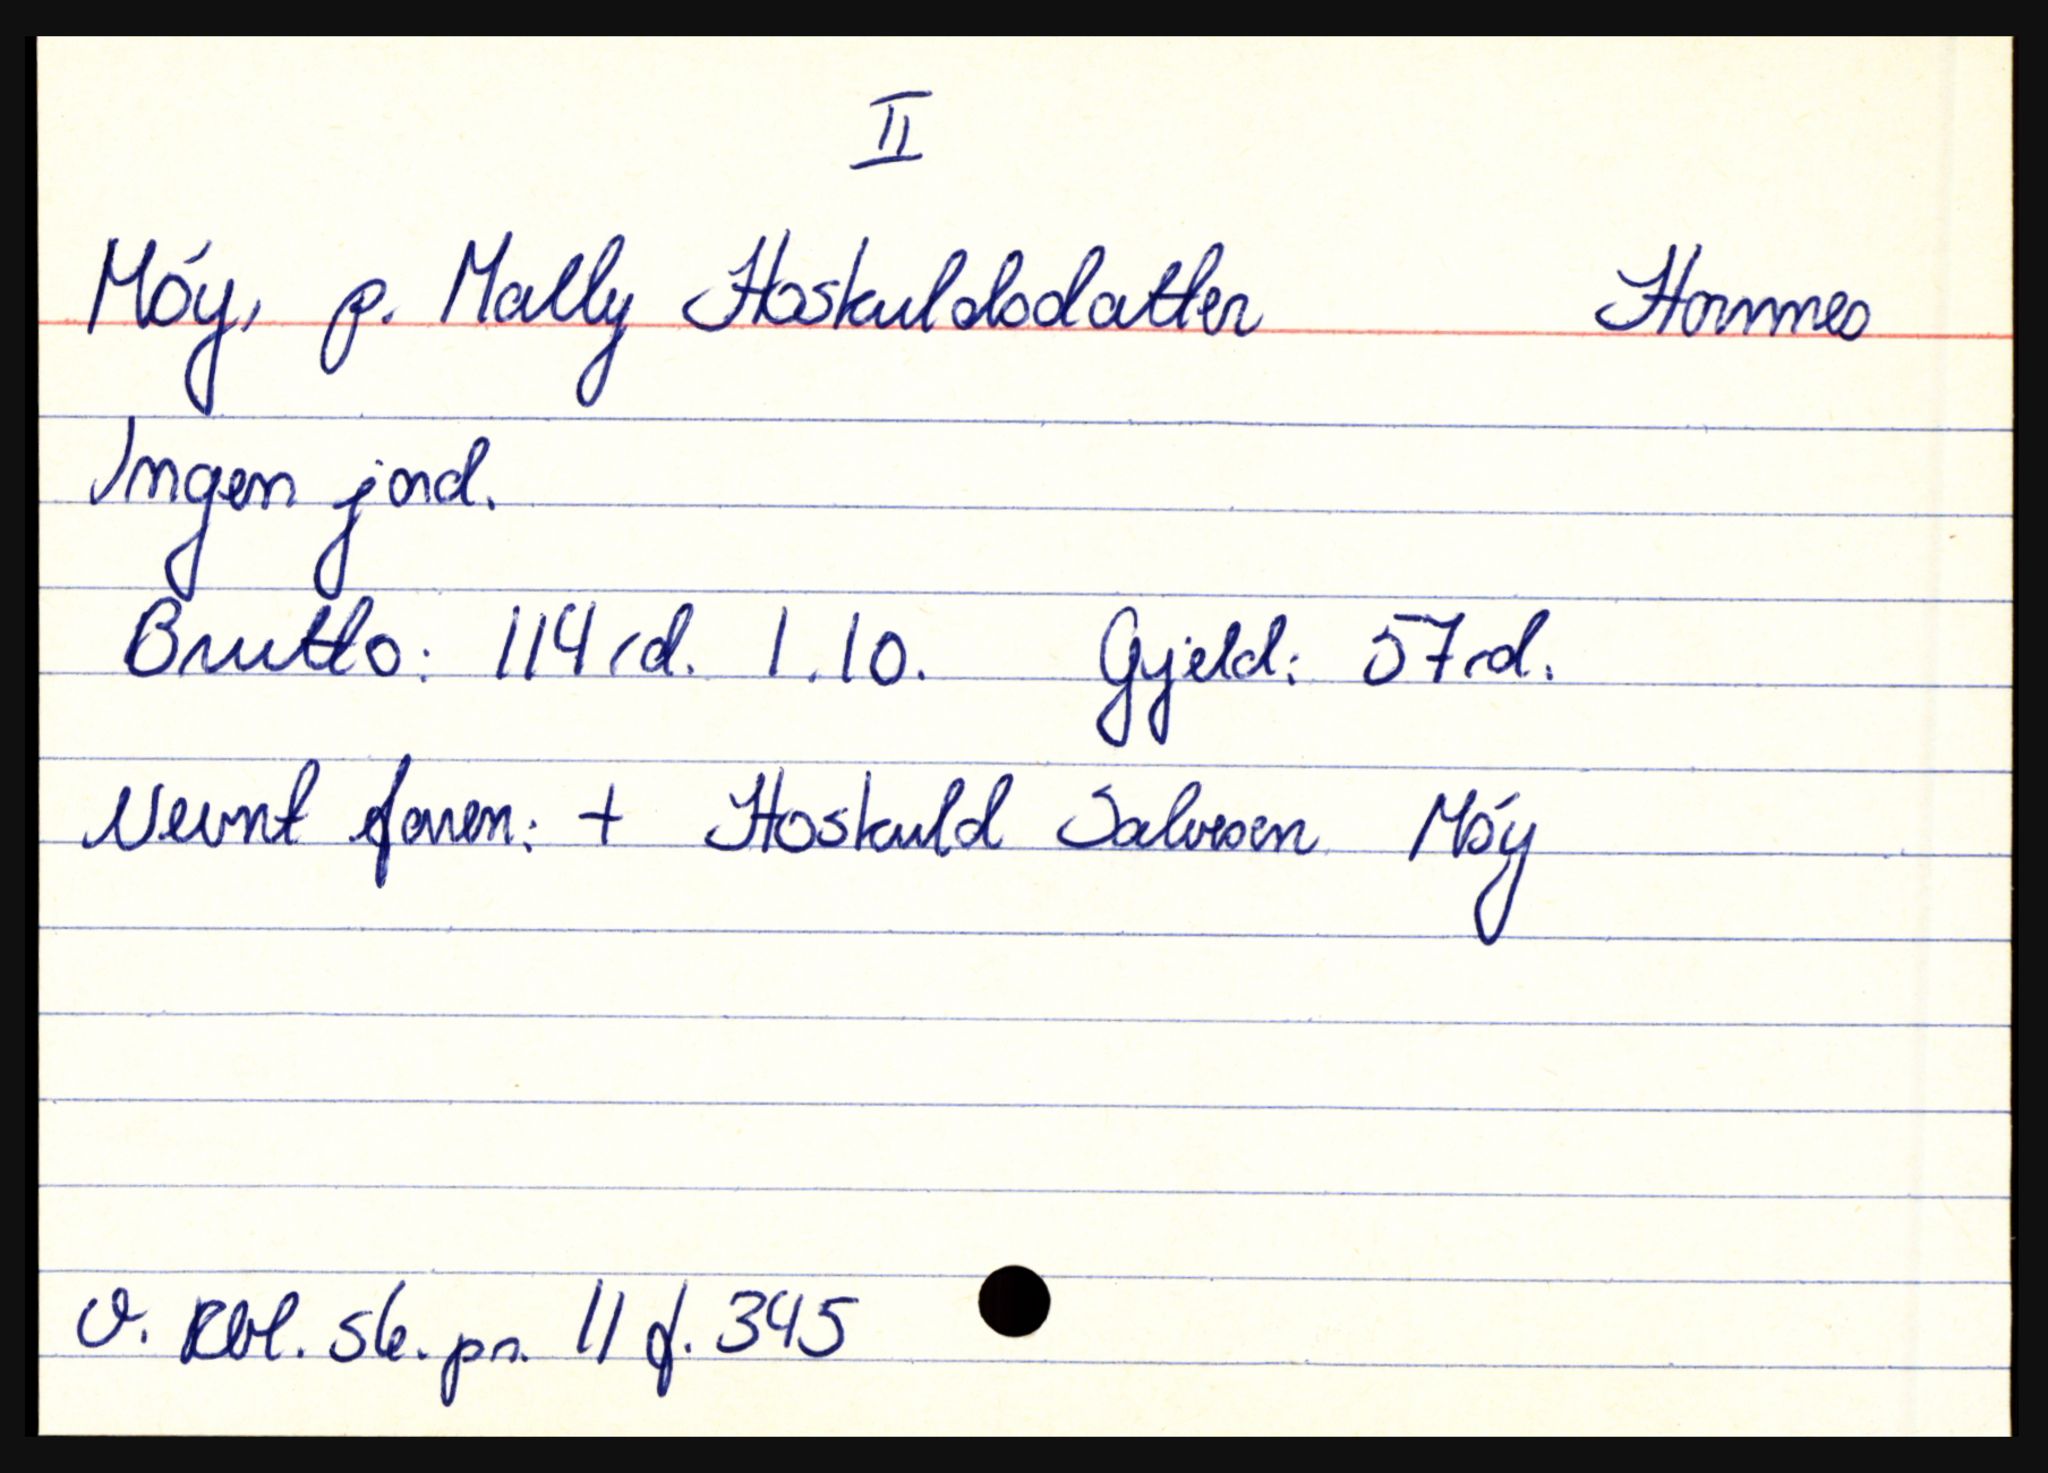 II
Móy, p. Mally Hoskuldsdatter Hornnes
Ingen jord.
Brutto: 114 rd. 1.10. Gjeld: 57 rd.
Nevnt faren: + Hoskuld Salvesen Móy
V. Rbl. sk. pr. 11 f. 345